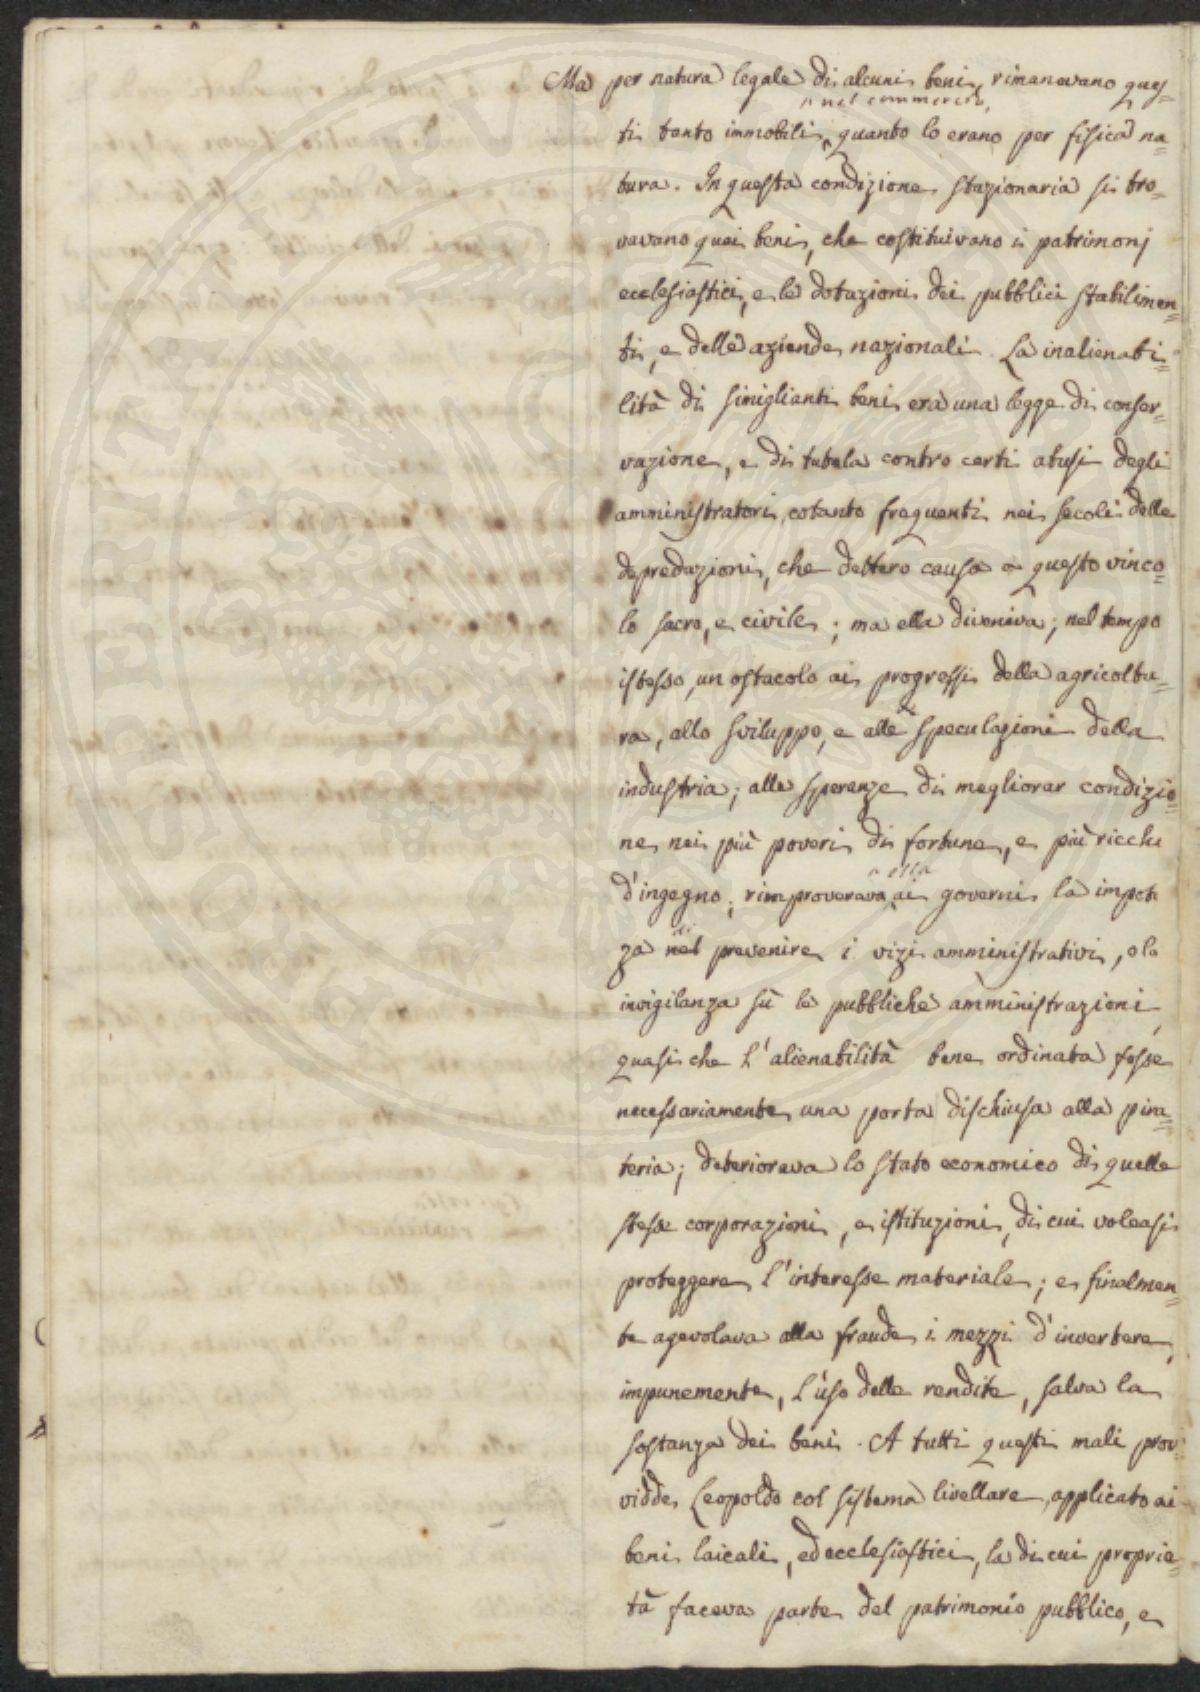 Ma per natura legale di alcuni beni, rimanevano ques=
nel commercio,
ti tanto immobili, quanto lo erano per fisica na=
tura. In questa condizione stazionaria si tro=
vavano quei beni, che costituivano i patrimonj
ecclesiastici, e le dotazioni dei pubblici stabilimen=
ti, e delle aziende nazionali. La inalienabi=
lità di simiglianti beni era una legge di conser=
vazione, e di tutela contro certi abusi degli
amministratori, cotanto frequenti nei secoli delle
depredazioni, che dettero causa a questo vinco=
lo sacro, e civile; ma ella diveniva, nel tempo
istesso, un ostacolo ai progressi della agricoltu=
ra, allo sviluppo, e alle speculazioni della
industria; alle speranze di megliorar condizio=
ne nei più poveri di fortune, e più ricchi
ella
d'ingegno; rimproverava ai governi la impoten
za nel prevenire i vizi amministrativi, o la
invigilanza sù le pubbliche amministrazioni,
quasi che l'alienabilità bene ordinata fosse
necessariamente una porta dischiusa alla pira=
teria; deteriorava lo stato economico di quelle
stesse corporazioni, e istituzioni, di cui voleasi
proteggere l'interesse materiale; e finalmen=
te agevolava alla fraude i mezzi d'invertere,
impunemente, l'uso delle rendite, salva la
sostanza dei beni. A tutti questi mali prov=
vidde Leopoldo col sistema livellare, applicato ai
beni laicali, ed ecclesiastici, la di cui proprie=
tà faceva parte del patrimonio pubblico, e